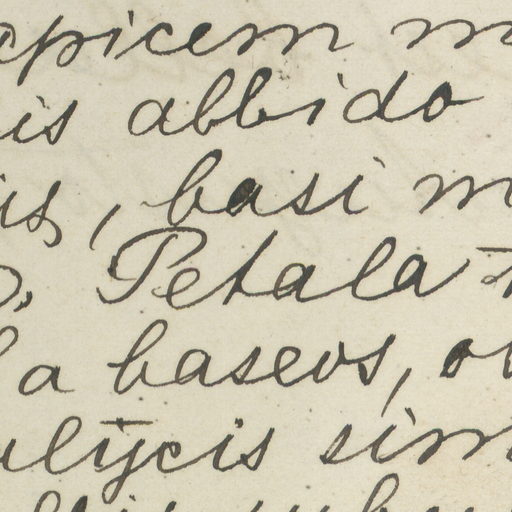 apicem m
is albido
is, basi m
Petala
a baseos, o
alycis sim